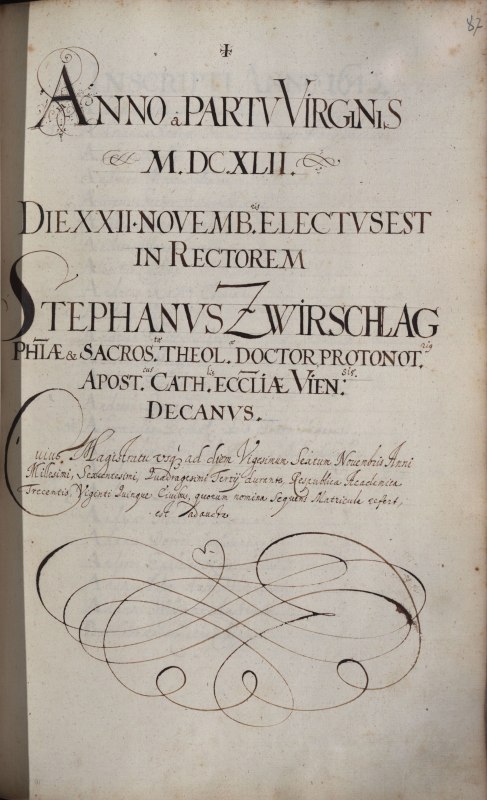 87
ANNO â PARTV VIRGINIS
M.DC.XLII.
DIE XXII. NOVEMB.ris ELECTVS EST
IN RECTOREM
STEPHANVS ZWIRSCHLAG
PHIÆ & SACROS.tæ THEOL.æ DOCTOR PROTONOT.rig
APOST.cus CATH.lis ECCLIÆ VIEN:sis.
DECANVS.
Cuius, Magistratu vsq; ad diem Vigesimum Sextum Nouembris Anni
Millesimi, Sexcentesimi, Quadragesimi Tertij durante, Respublica Academica
Trecentis Viginti Quinque Ciuibus, quorum nomina Sequens Matricula refert,
est Adaucta